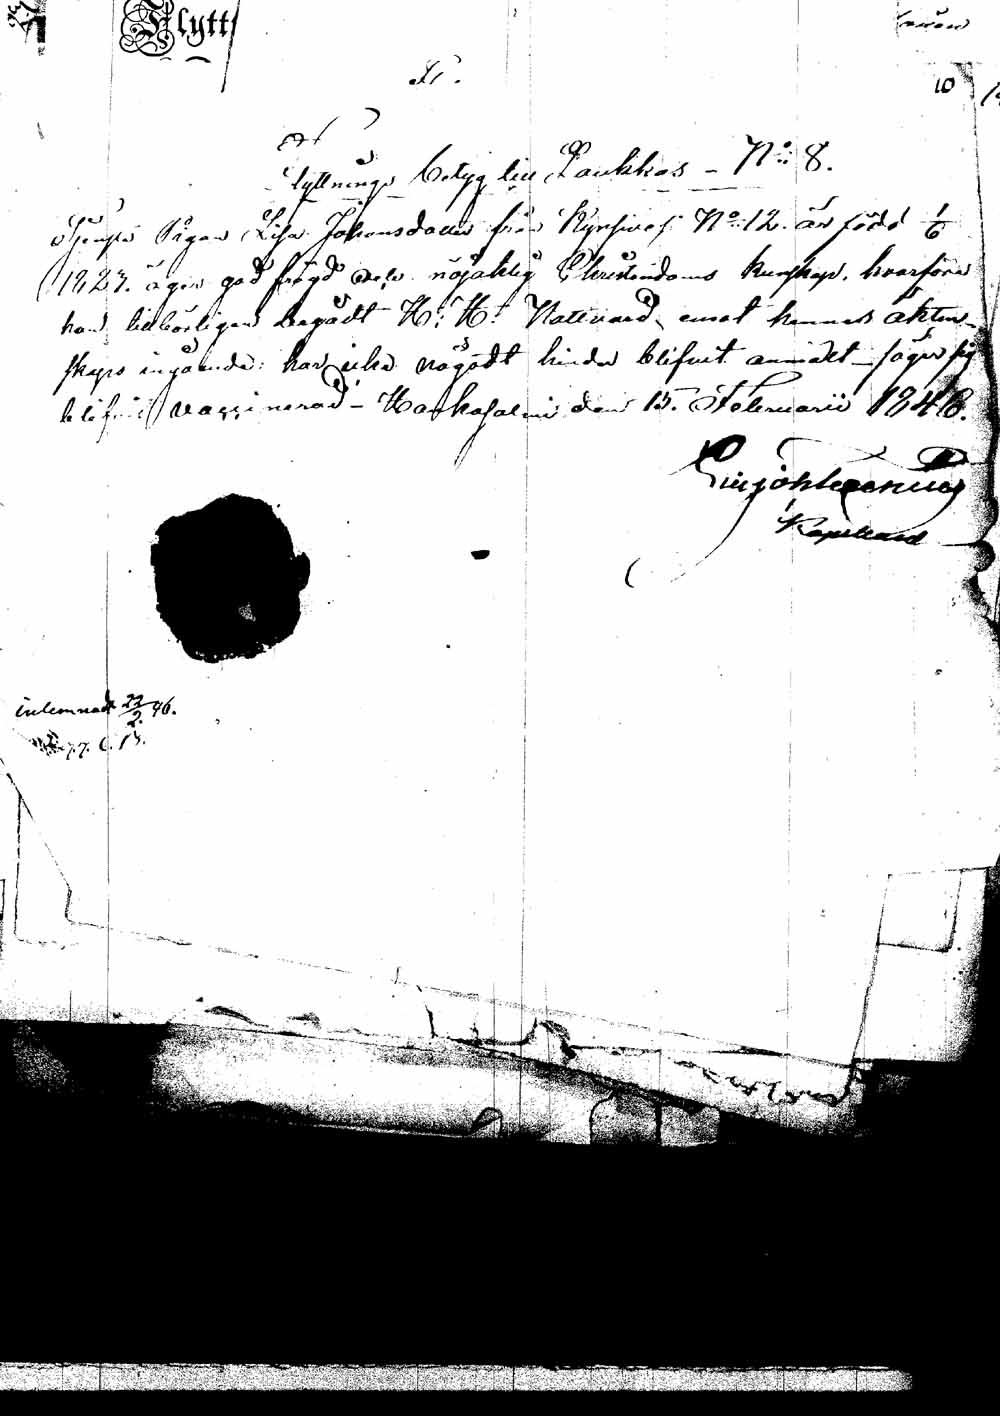 Flytt
10
Flyttnings betyg till Laukkas – No: 8.
Tjenste Pigan Lisa Johansdotter från Kynsiveſi No: 12. är född 1/6
1823. äger god frägd och nöjaktig Christendoms kunskap, hvarföre
hon behörigen begådt H: H: Nattvard, emot hennes äkten-
skaps ingående har icke någodt hinder blifvit anmäldt – säges sig
blifvit vaccinerad – Hankasalmi den 15. Februarii 1846.
Kapellans
inlemnadt 22/2 46.